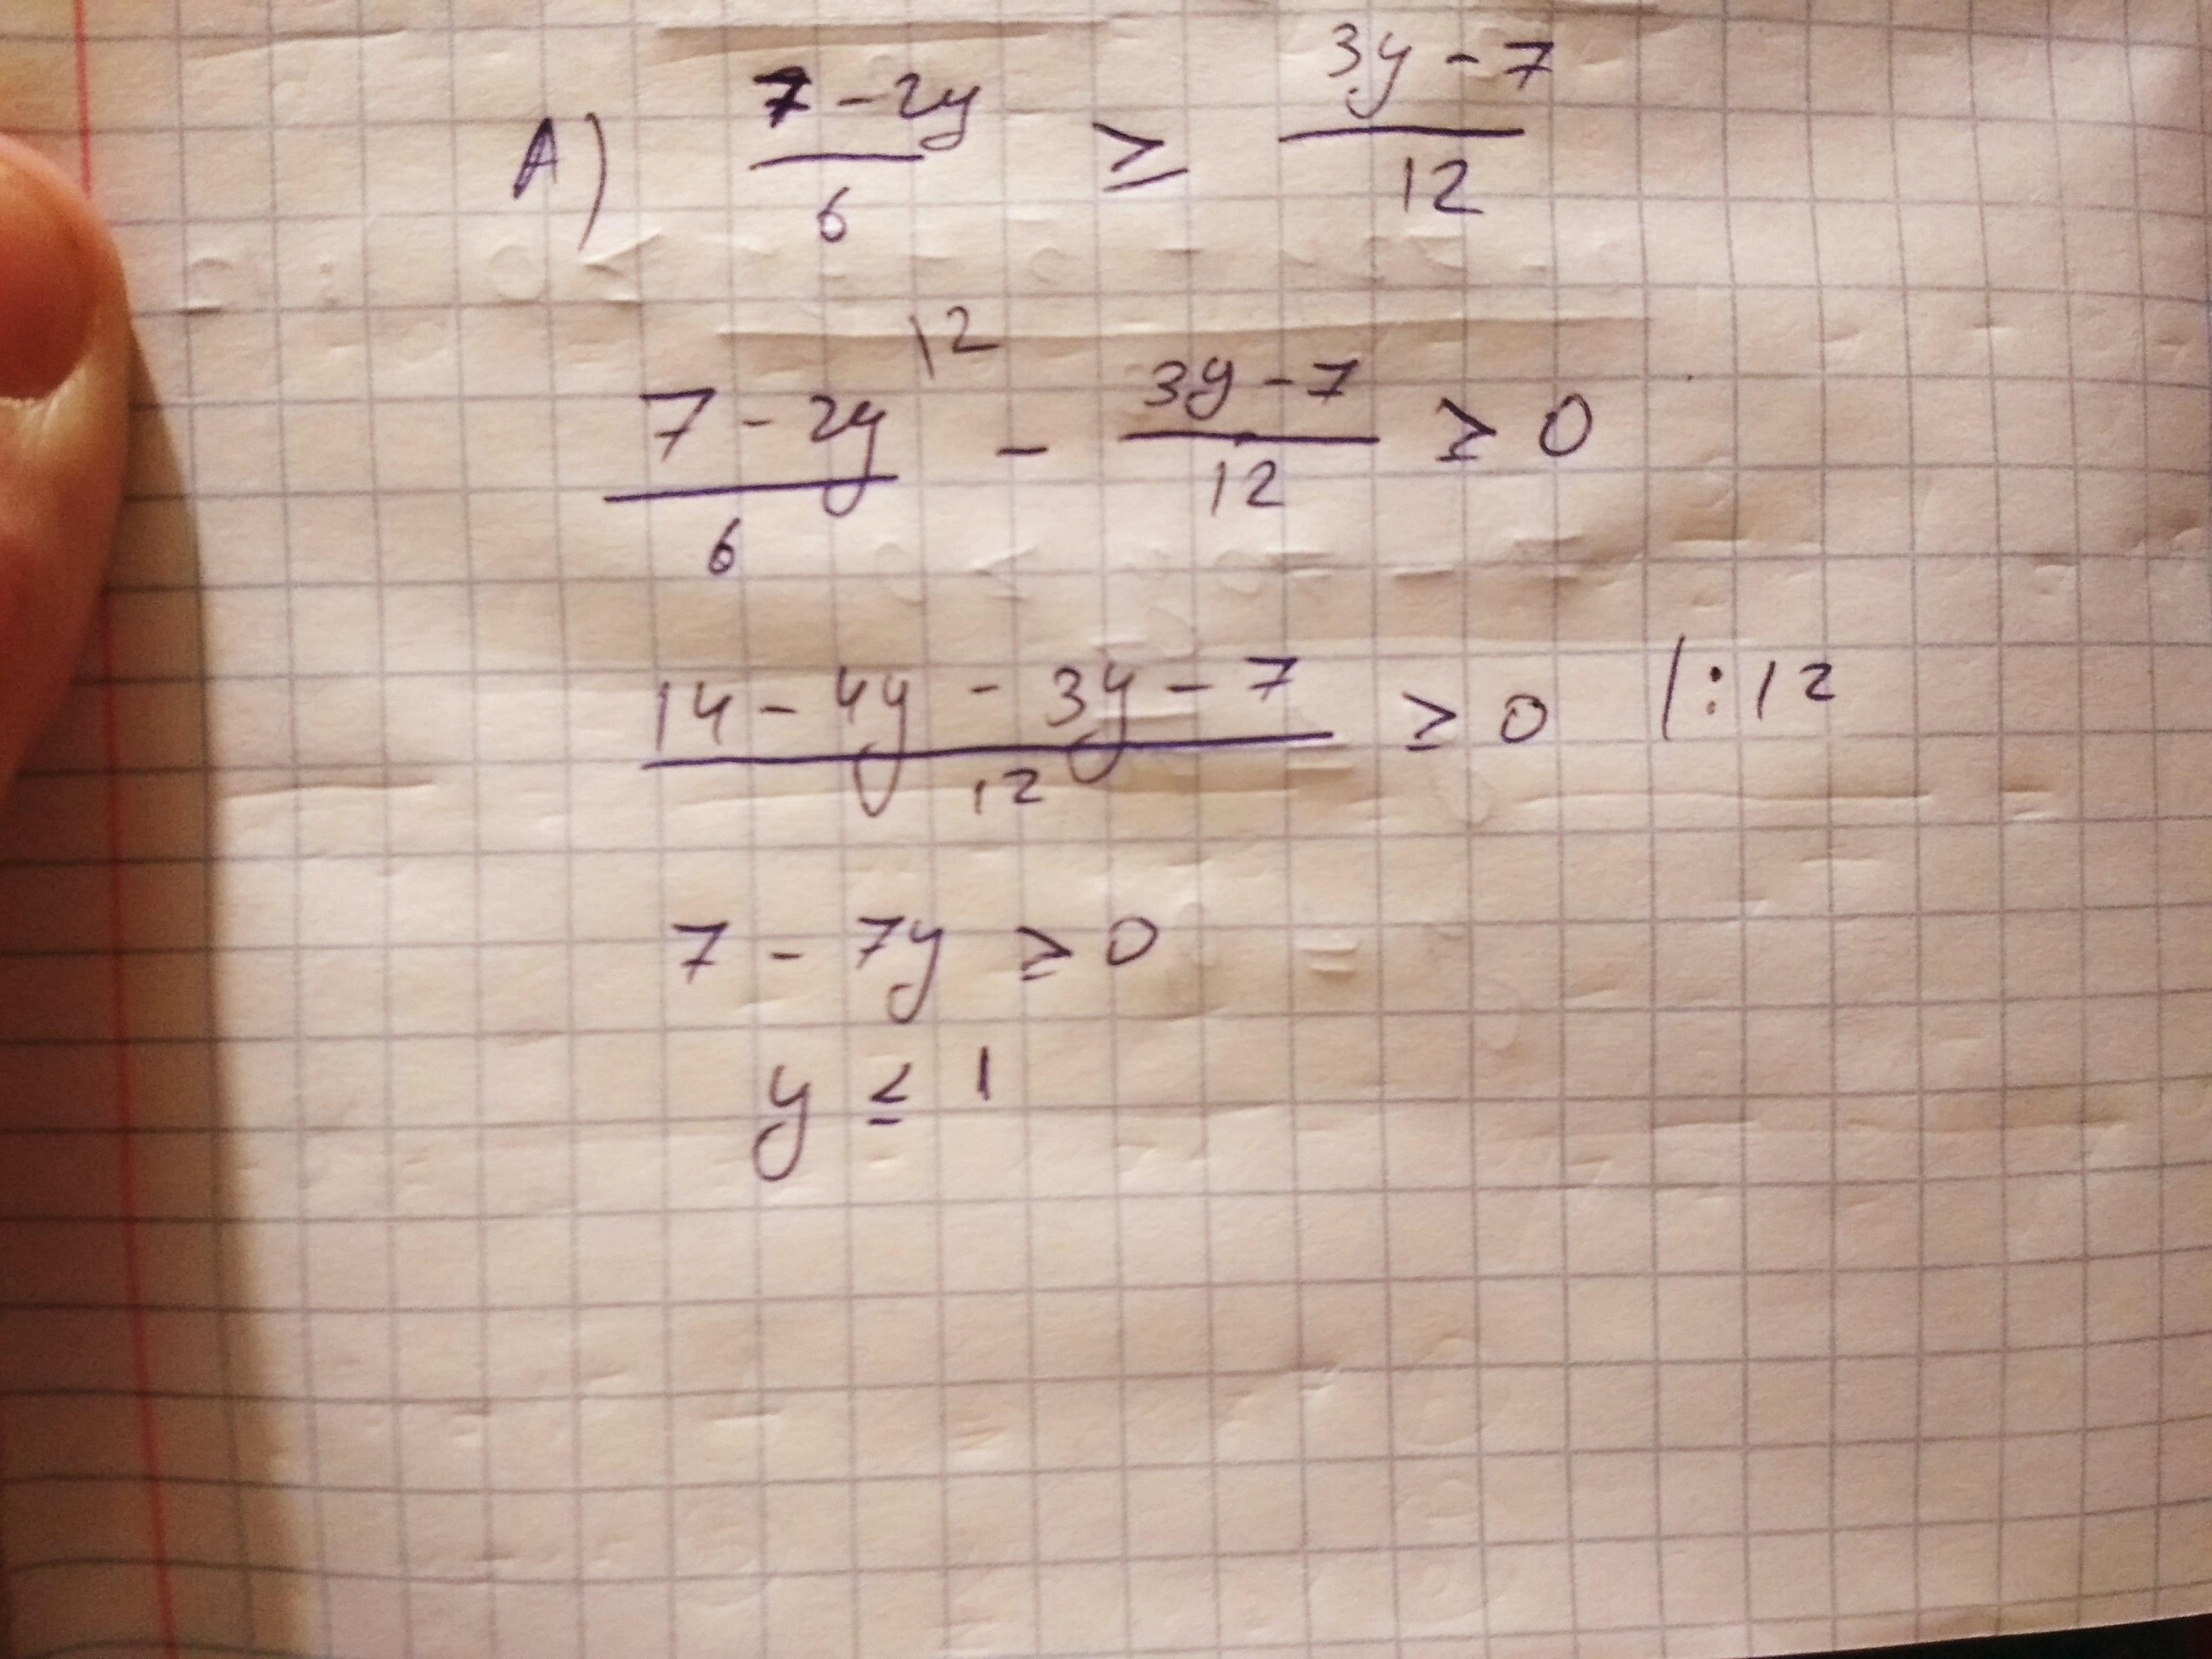 A) (7 - 2y)/6 ≥ (3y - 7)/12
12
(7 - 2y)/6 - (3y - 7)/12 ≥ 0
(14 - 4y - 3y - 7)/12 ≥ 0 /:12
7 - 7y ≥ 0
y ≤ 1